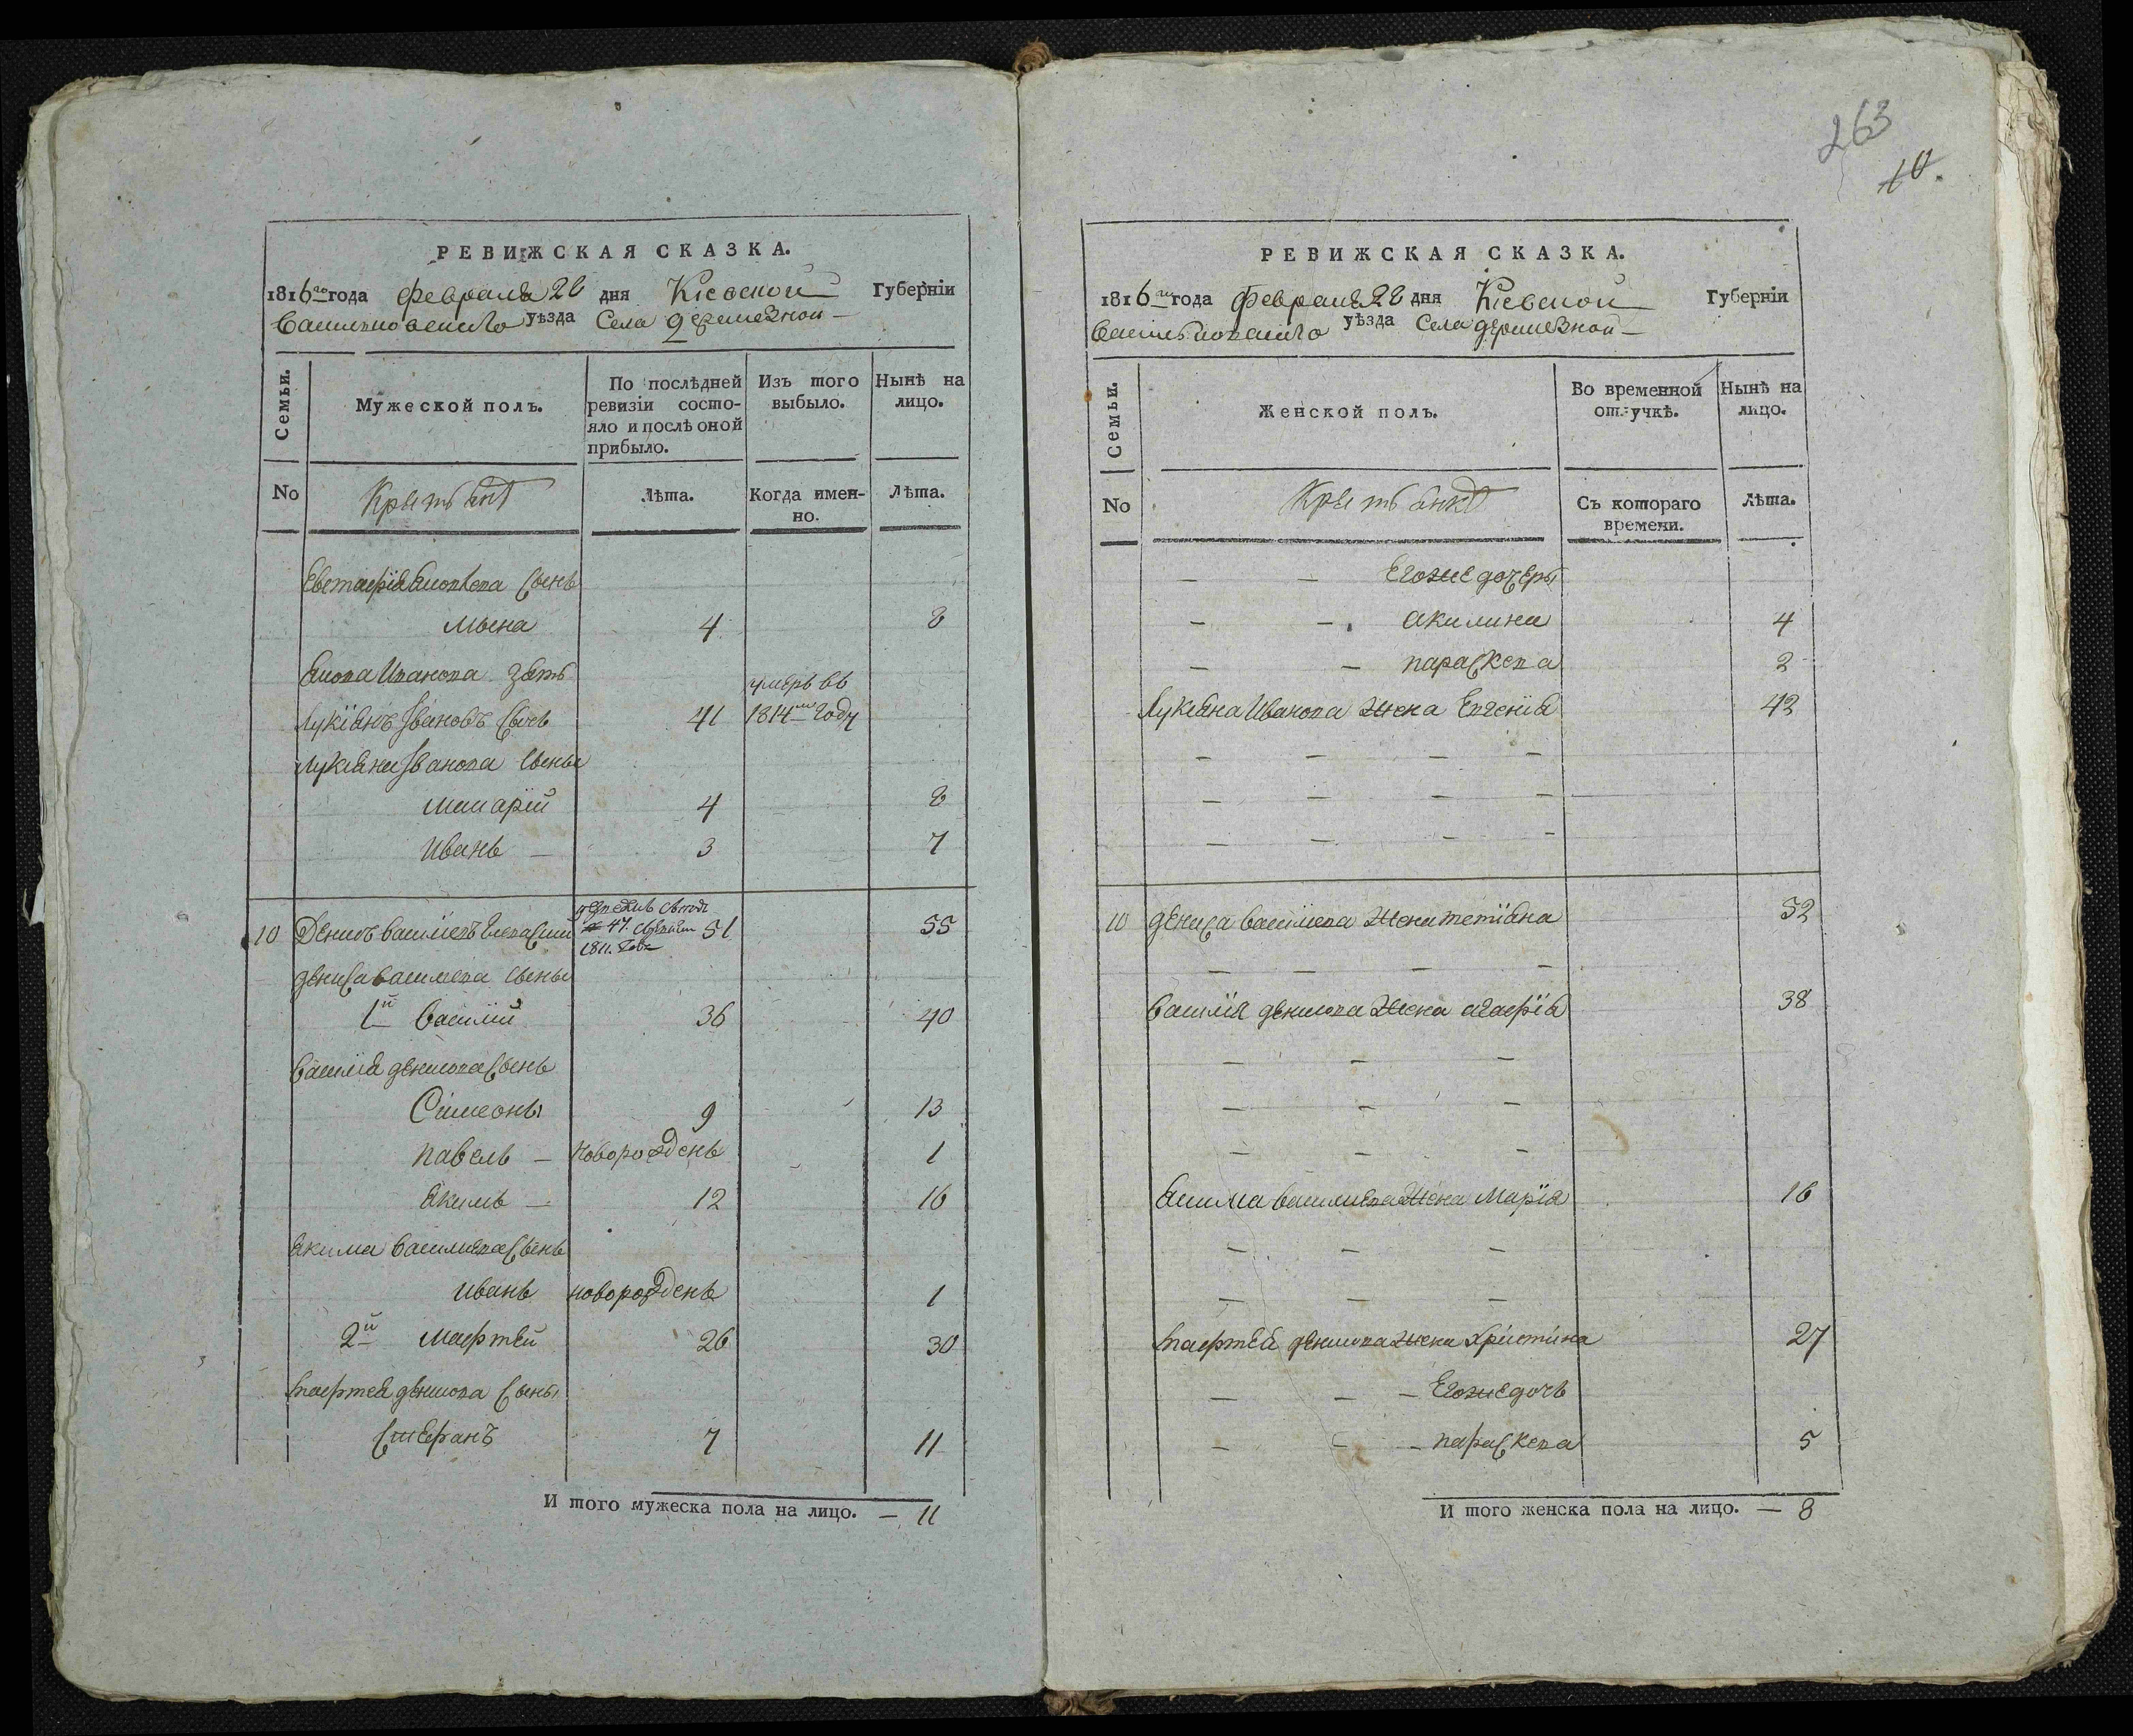 РЕВИЖСКАЯ СКАЗКА.
1816го года Февраля 28 дня Кіевской Губерніи
Васильковскаго уѣзда Села
Семьи.
Мужеской полъ.
По послѣдней ревизіи состо-
яло и послѣ оной
прибыло.
Изъ того
выбыло.
Нынѣ на
лицо.
No
Крестьянѣ
Лѣта.
Когда имен-
но.
Лѣта.
Евстафія Яковлева сынъ
4 8
Якова Иванова зять
Лукіянъ Івановъ 41 умеръ въ
1814м году
Лукіяна Іванова сыны
Макарій 4 8
Иванъ — 3 7
10 Денисъ Василіевъ 51 55
47.
1811. года
Дениса Василіева сыны
1й Василій 36 40
Василія Денисова сынъ
Сімеонъ 9 13
Павелъ — новорожденъ 1
Якимъ — 12 16
Якима Василіева сынъ
Иванъ новорожденъ 1
2й 26 30
Денисова сынъ
Стефанъ 7 11
И того мужеска пола на лицо. — 11
263
10.
РЕВИЖСКАЯ СКАЗКА.
1816го года Февраля 28 дня Кіевской Губерніи
Васильковскаго уѣзда Села
Семьи.
Женской полъ.
Во временной
отлучкѣ.
Нынѣ на
лицо.
No
Крестьянкѣ
Съ котораго
времени.
Лѣта.
— — Егоже дочери
— — Акилина 4
— — Параскева 2
Лукіяна Иванова жена Евгенія 42
— — — —
— — — —
— — — —
10 Дениса Василіева жена Тетіяна 52
— — — —
Василія Денисова жена Агафія 38
— — —
— — —
— — —
Якима Василіева жена Марія 16
— — —
— — —
Денисова жена Хрістина 27
— — — Егоже дочь
— — — Параскева 5
И того женска пола на лицо. — 8